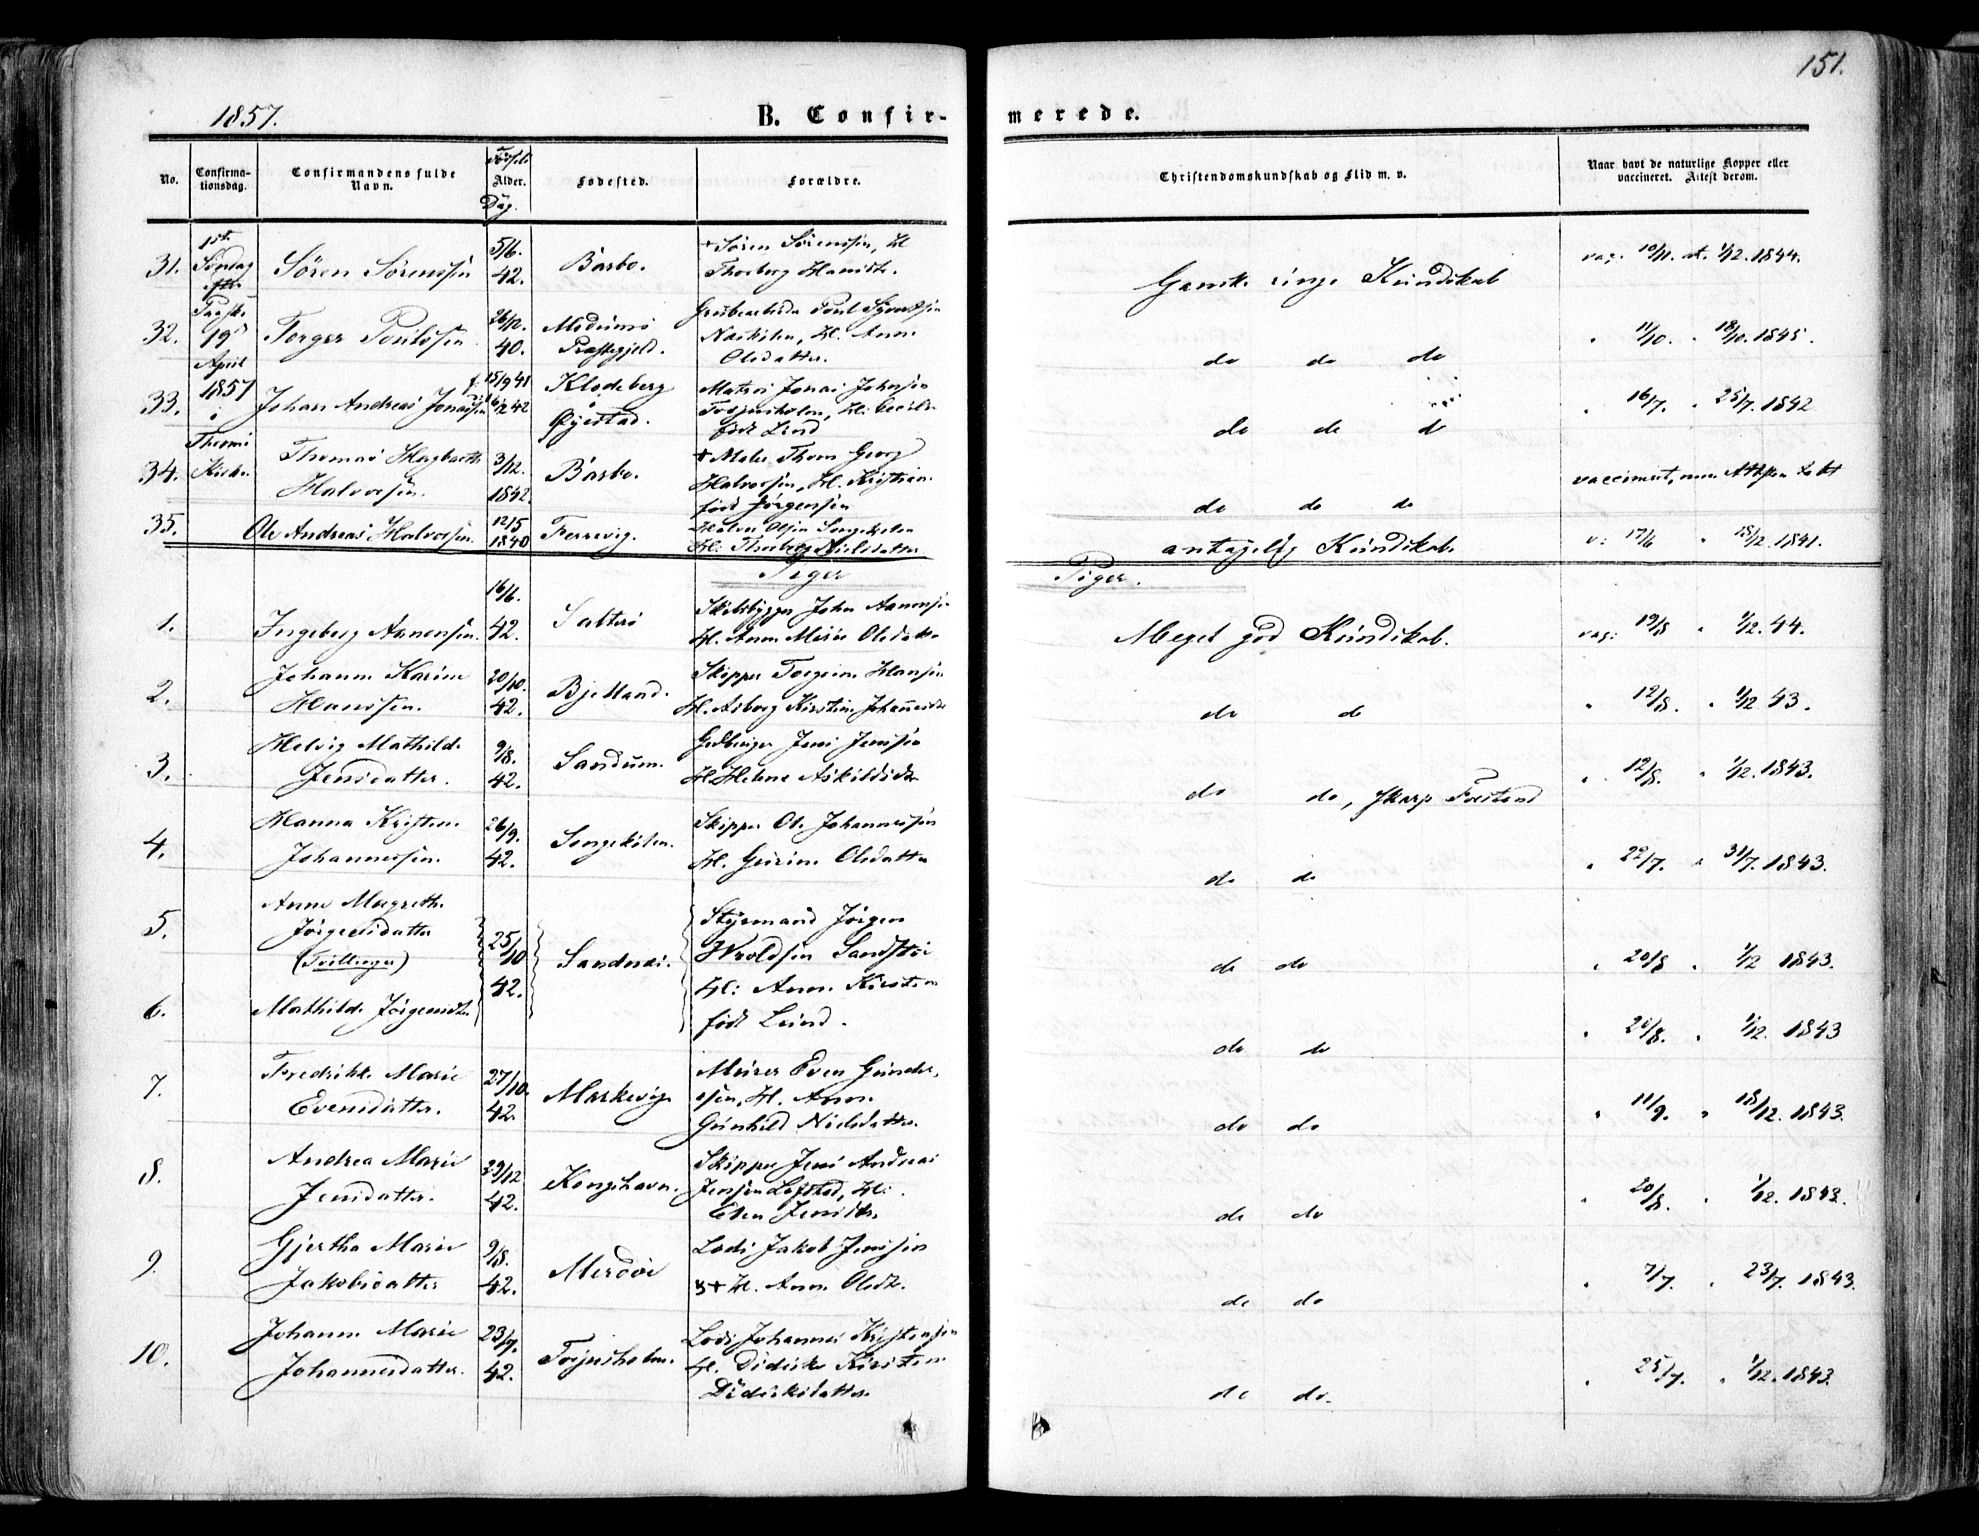 151.
1857. B. Confir- merede.
No. Confirma- Confirmandens fulde Fødsels Alder. Fødested. Forældre. Christendomskundskab og Flid m. v. Naar havt de naturlige Kopper eller
tionsdag. Navn. Dag. vaccineret. Attest derom.
1ste Søndag efter Paaske 19de April 1857 i Kirke
31. Sören Sörenssen 5/6. 42. Barbo. + Sören Sörenssen, H.
Thorborg Hansdtr.
Ganske ringe Kundskab vac. 10/11. at. 1/12. 1844.
32. Torger Poulssen 26/12. 40. Præstegjeld.
Poul
H. Anne
Olsdatter.
do do do " 11/10. " 18/10. 1845.
33. Johan Andreas Jonassen f. 15/9 41 d. 16/2 42 Klodeberg
Øjestad.
Matros Jonas Johnsen
Torjusholm, H.
født Lund
do do do " 16/7. " 25/7. 1842
34. Thomas Hagbarth
Halvorsen. 3/12. 1842. Barbo.
+ Maler Thom Georg
Halvorsen, H. Kristine
født Jørgensen
do do do vaccineret, men Attesten tabt
35. Ole Andreas Halvorsen. 12/5 1840 Færevig.
Halvor Olsen Songekilen
H. Thorborg Nielsdatter
antagelig Kundskab. v: 17/6 " 18/12. 1841.
Piger Piger.
1. Ingeborg Aanensen. 16/6. 42. Salterö
Skibsbygger John Aanensen
H. Anne Marie Olsdatter
Meget god Kundskab. vac: 19/8 " 1/12. 44.
2. Johanne Karine
Hanssen. 20/10. 42. Bjelland.
Skipper Torgrim Hansen
H. Asborg Kirstine Johannesdtr
do do " 12/8. " 1/12 43.
3. Helvig Mathilde
Jensdatter. 9/8. 42. Sandum.
Jens Jenssen
H. Helene Askildsdtr
do do, skarp Forstand " 12/8. " 1/12. 1843.
4. Hanna Kristine
Johannessen. 26/9. 42. Songekilen.
Skipper Ole Johannessen
H. Gurine Olsdatter
do do " 22/7. " 31/7. 1843.
5. Anne Margrethe
Jörgensdatter
(Tvillinger) 25/10 42. Sandnæs.
Styrmand Jörgen
Wroldsen Sandstø
H: Anne Kirstine
født Lund.
do do " 20/8 " 1/12 1843.
6. Mathilde Jörgensdtr.
do do " 20/8. " 1/12. 1843
7. Fredrikke Marie
Evensdatter. 27/10. 42. Markevig
Murer Even Gunder-
sen, H. Anne
Gunhild Nielsdatter.
do do " 11/9. " 18/12. 1843.
8. Andrea Marie
Jensdatter. 29/12 42. Kongshavn.
Skipper Jens Andreas
Jensen Løfstad, H:
Ellen Jensdtr.
do do " 20/8. " 1/12. 1843.
9. Gjertha Marie
Jakobsdatter 9/8. 42. Merdøe
Lods Jakob Jenssen
+ H. Anne Olsdtr.
do do " 7/7. " 23/7. 1843.
10. Johanne Marie
Johannesdatter. 23/7. 42. Torjusholm.
Lods Johannes Kristensen
H. Didrikke Kirstine
Didriksdatter
do do. " 25/7. " 1/12. 1843.